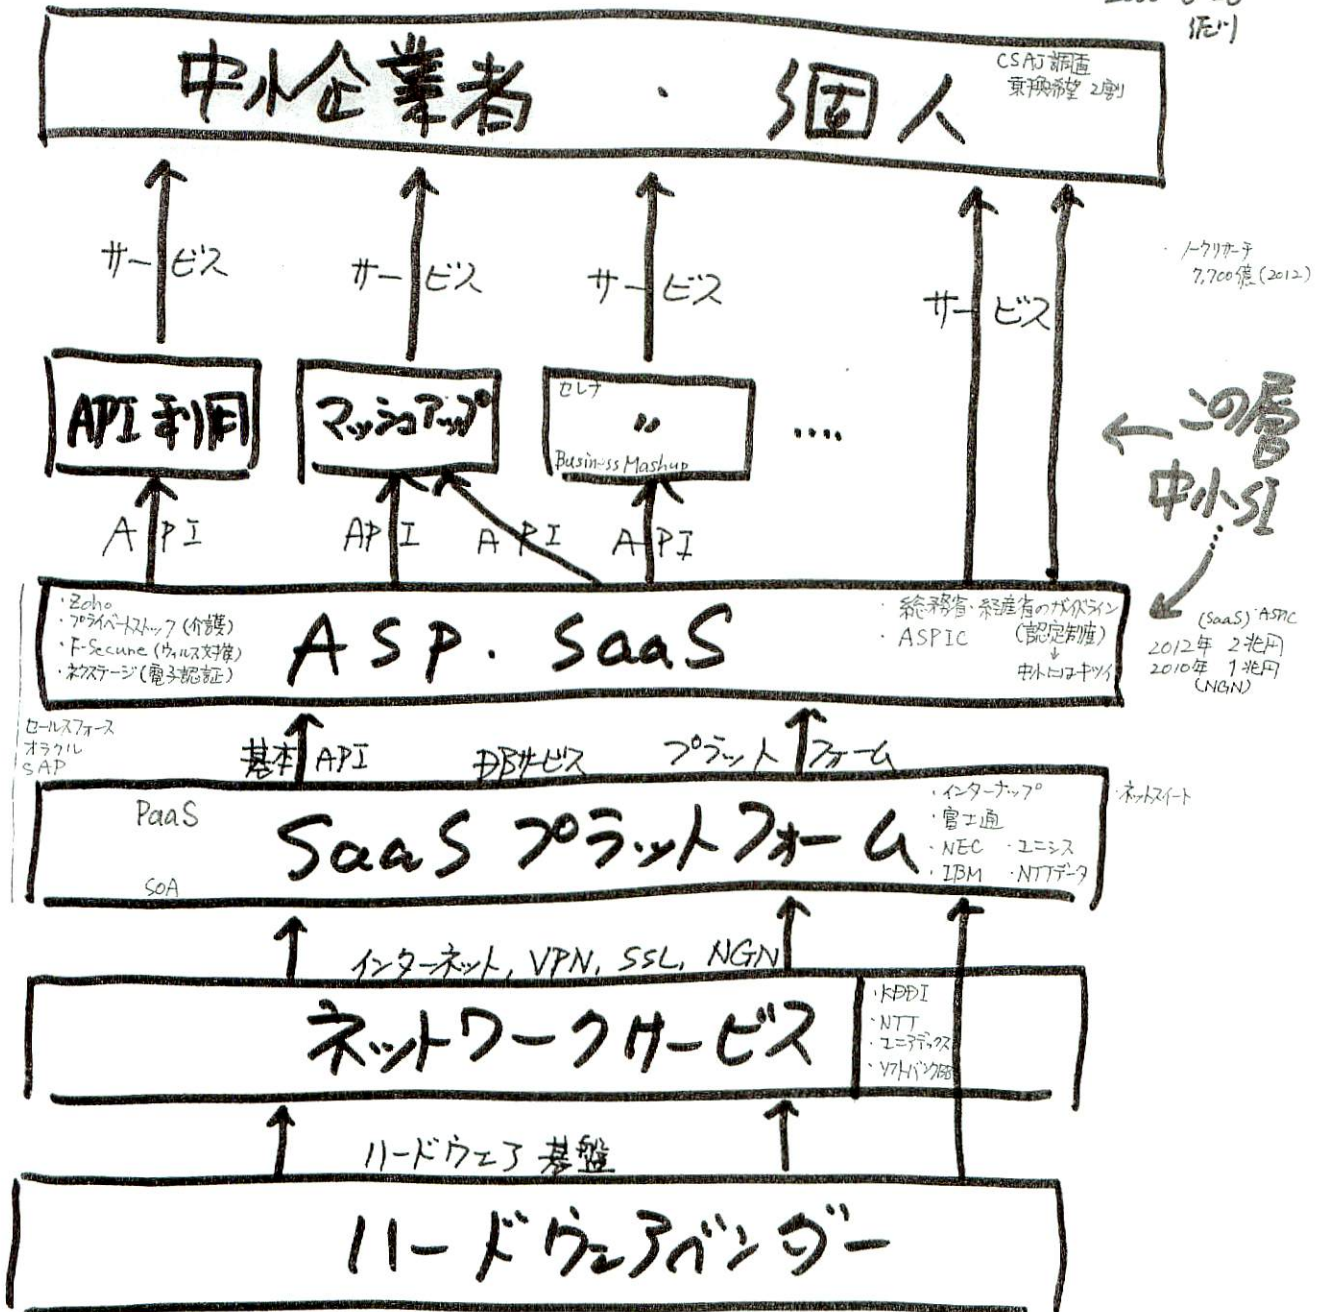 佐川
中小企業者 ・ 個人
CSAJ調査
乗換希望 2割
サービス
サービス
サービス
サービス
・ノークリサーチ
7,700億(2012)
API利用
マッシュアップ
セレナ
〃
Business Mashup
....
← この層
中小SI
API
API
API
API
・Zoho
・プライベートストック(介護)
・F-Secure(ウィルス対策)
・ネクステージ(電子認証)
ASP・SaaS
・総務省・経産省のガイドライン
(認定制度)
↓
中小にはキツイ
・ASPIC
(SaaS) ASPIC
2012年 2兆円
2010年 1兆円
(NGN)
セールスフォース
オラクル
SAP
基本API
DBサービス
プラットフォーム
PaaS
SOA
SaaSプラットフォーム
・インターナップ
・富士通
・NEC ・ユニシス
・IBM ・NTTデータ
・ネットスイート
インターネット, VPN, SSL, NGN
ネットワークサービス
・KDDI
・NTT
・ユニアデックス
・ソフトバンクBB
ハードウェア基盤
ハードウェアベンダー